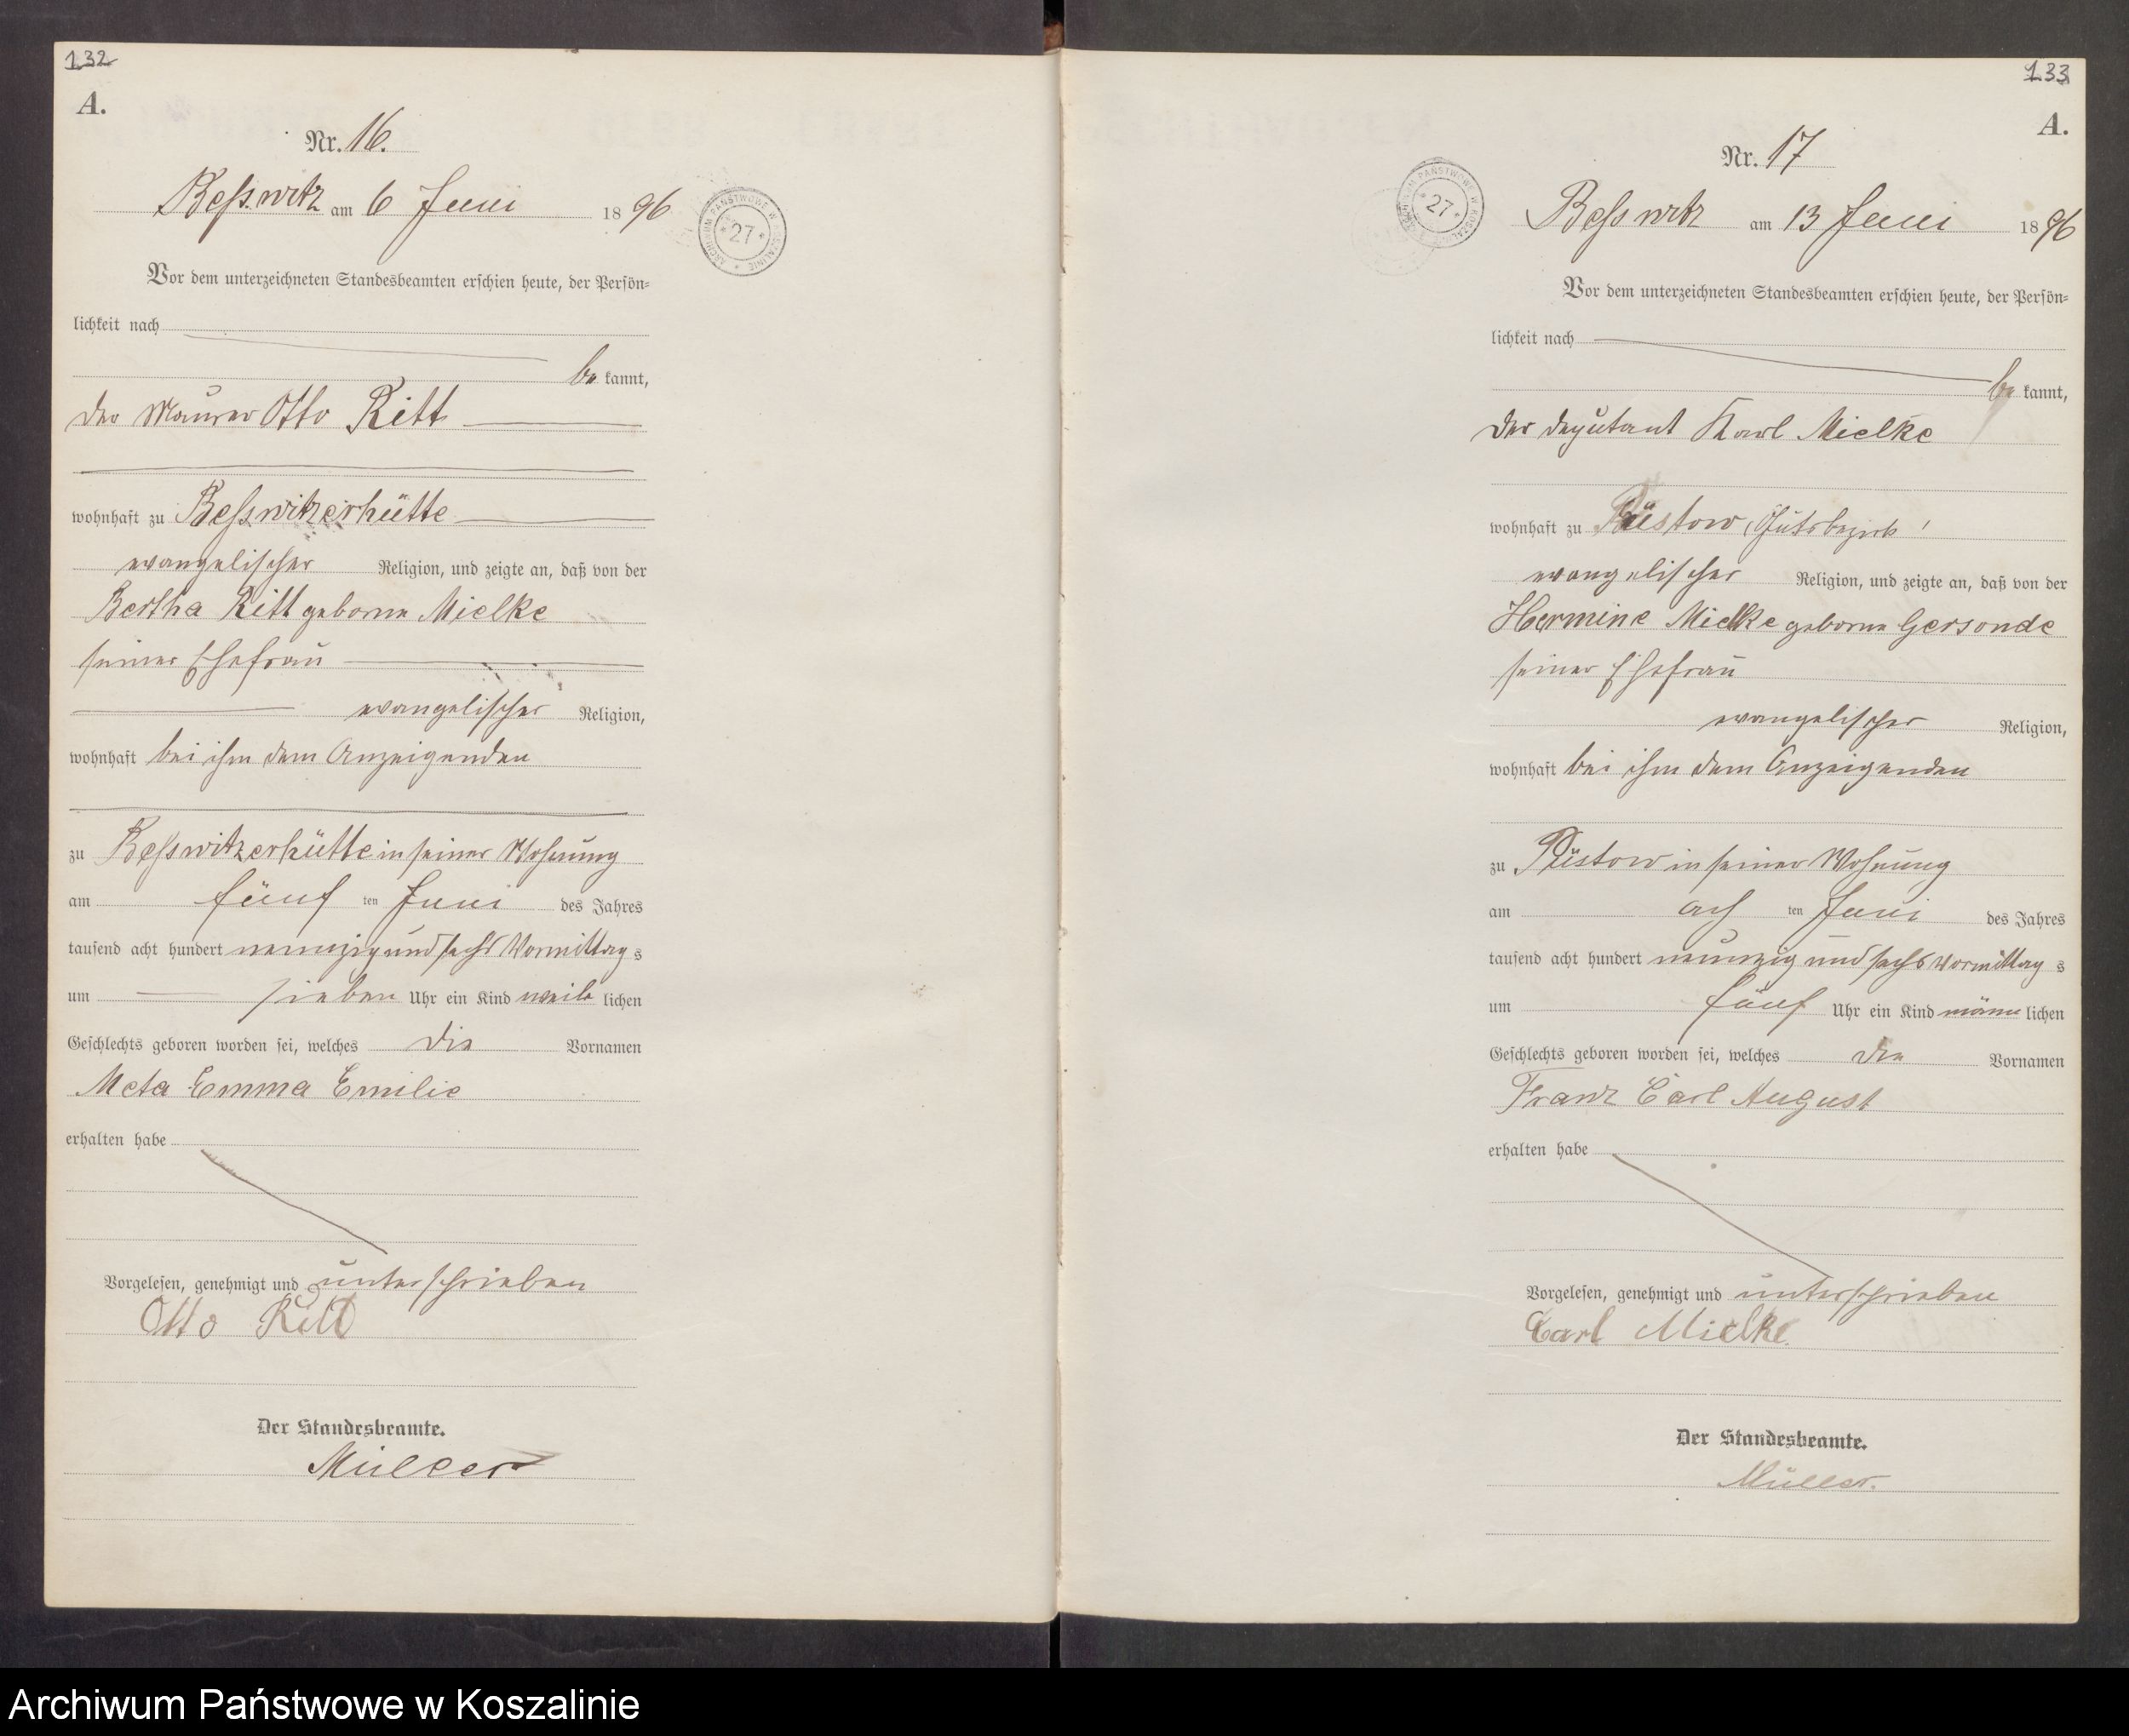 132
A.
Nr. 16.
Beßwitz am 6 Juni 1896
ARCHIWUM PAŃSTWOWE W KOSZALINIE * 27 *
Vor dem unterzeichneten Standesbeamten erschien heute, der Persön-
lichkeit nach
be kannt,
der Maurer Otto Ritt
wohnhaft zu Beßwitzerhütte
evangelischer Religion, und zeigte an, daß von der
Bertha Ritt geborne Mielke
seiner Ehefrau
evangelischer Religion,
wohnhaft bei ihm dem Anzeigenden
zu Beßwitzerhütte in seiner Wohnung
am fünf ten Juni des Jahres
tausend acht hundert neunzig und sechs Vormittag s
um sieben Uhr ein Kind weib lichen
Geschlechts geboren worden sei, welches die Vornamen
Meta Emma Emilie
erhalten habe
Vorgelesen, genehmigt und unterschrieben
Otto Ritt
Der Standesbeamte.
Müller
133
A.
Nr. 17
ARCHIWUM PAŃSTWOWE W KOSZALINIE * 27 *
Beßwitz am 13 Juni 1896
Vor dem unterzeichneten Standesbeamten erschien heute, der Persön-
lichkeit nach
be kannt,
der Deputant Karl Mielke
wohnhaft zu Püstow, Gutsbezirk
evangelischer Religion, und zeigte an, daß von der
Hermine Mielke geborne Gersonde
seiner Ehefrau
evangelischer Religion,
wohnhaft bei ihm dem Anzeigenden
zu Püstow in seiner Wohnung
am ach ten Juni des Jahres
tausend acht hundert neunzig und sechs Vormittag s
um fünf Uhr ein Kind männ lichen
Geschlechts geboren worden sei, welches die Vornamen
Franz Carl August
erhalten habe
Vorgelesen, genehmigt und unterschrieben
Carl Mielke.
Der Standesbeamte.
Müller.
Archiwum Państwowe w Koszalinie